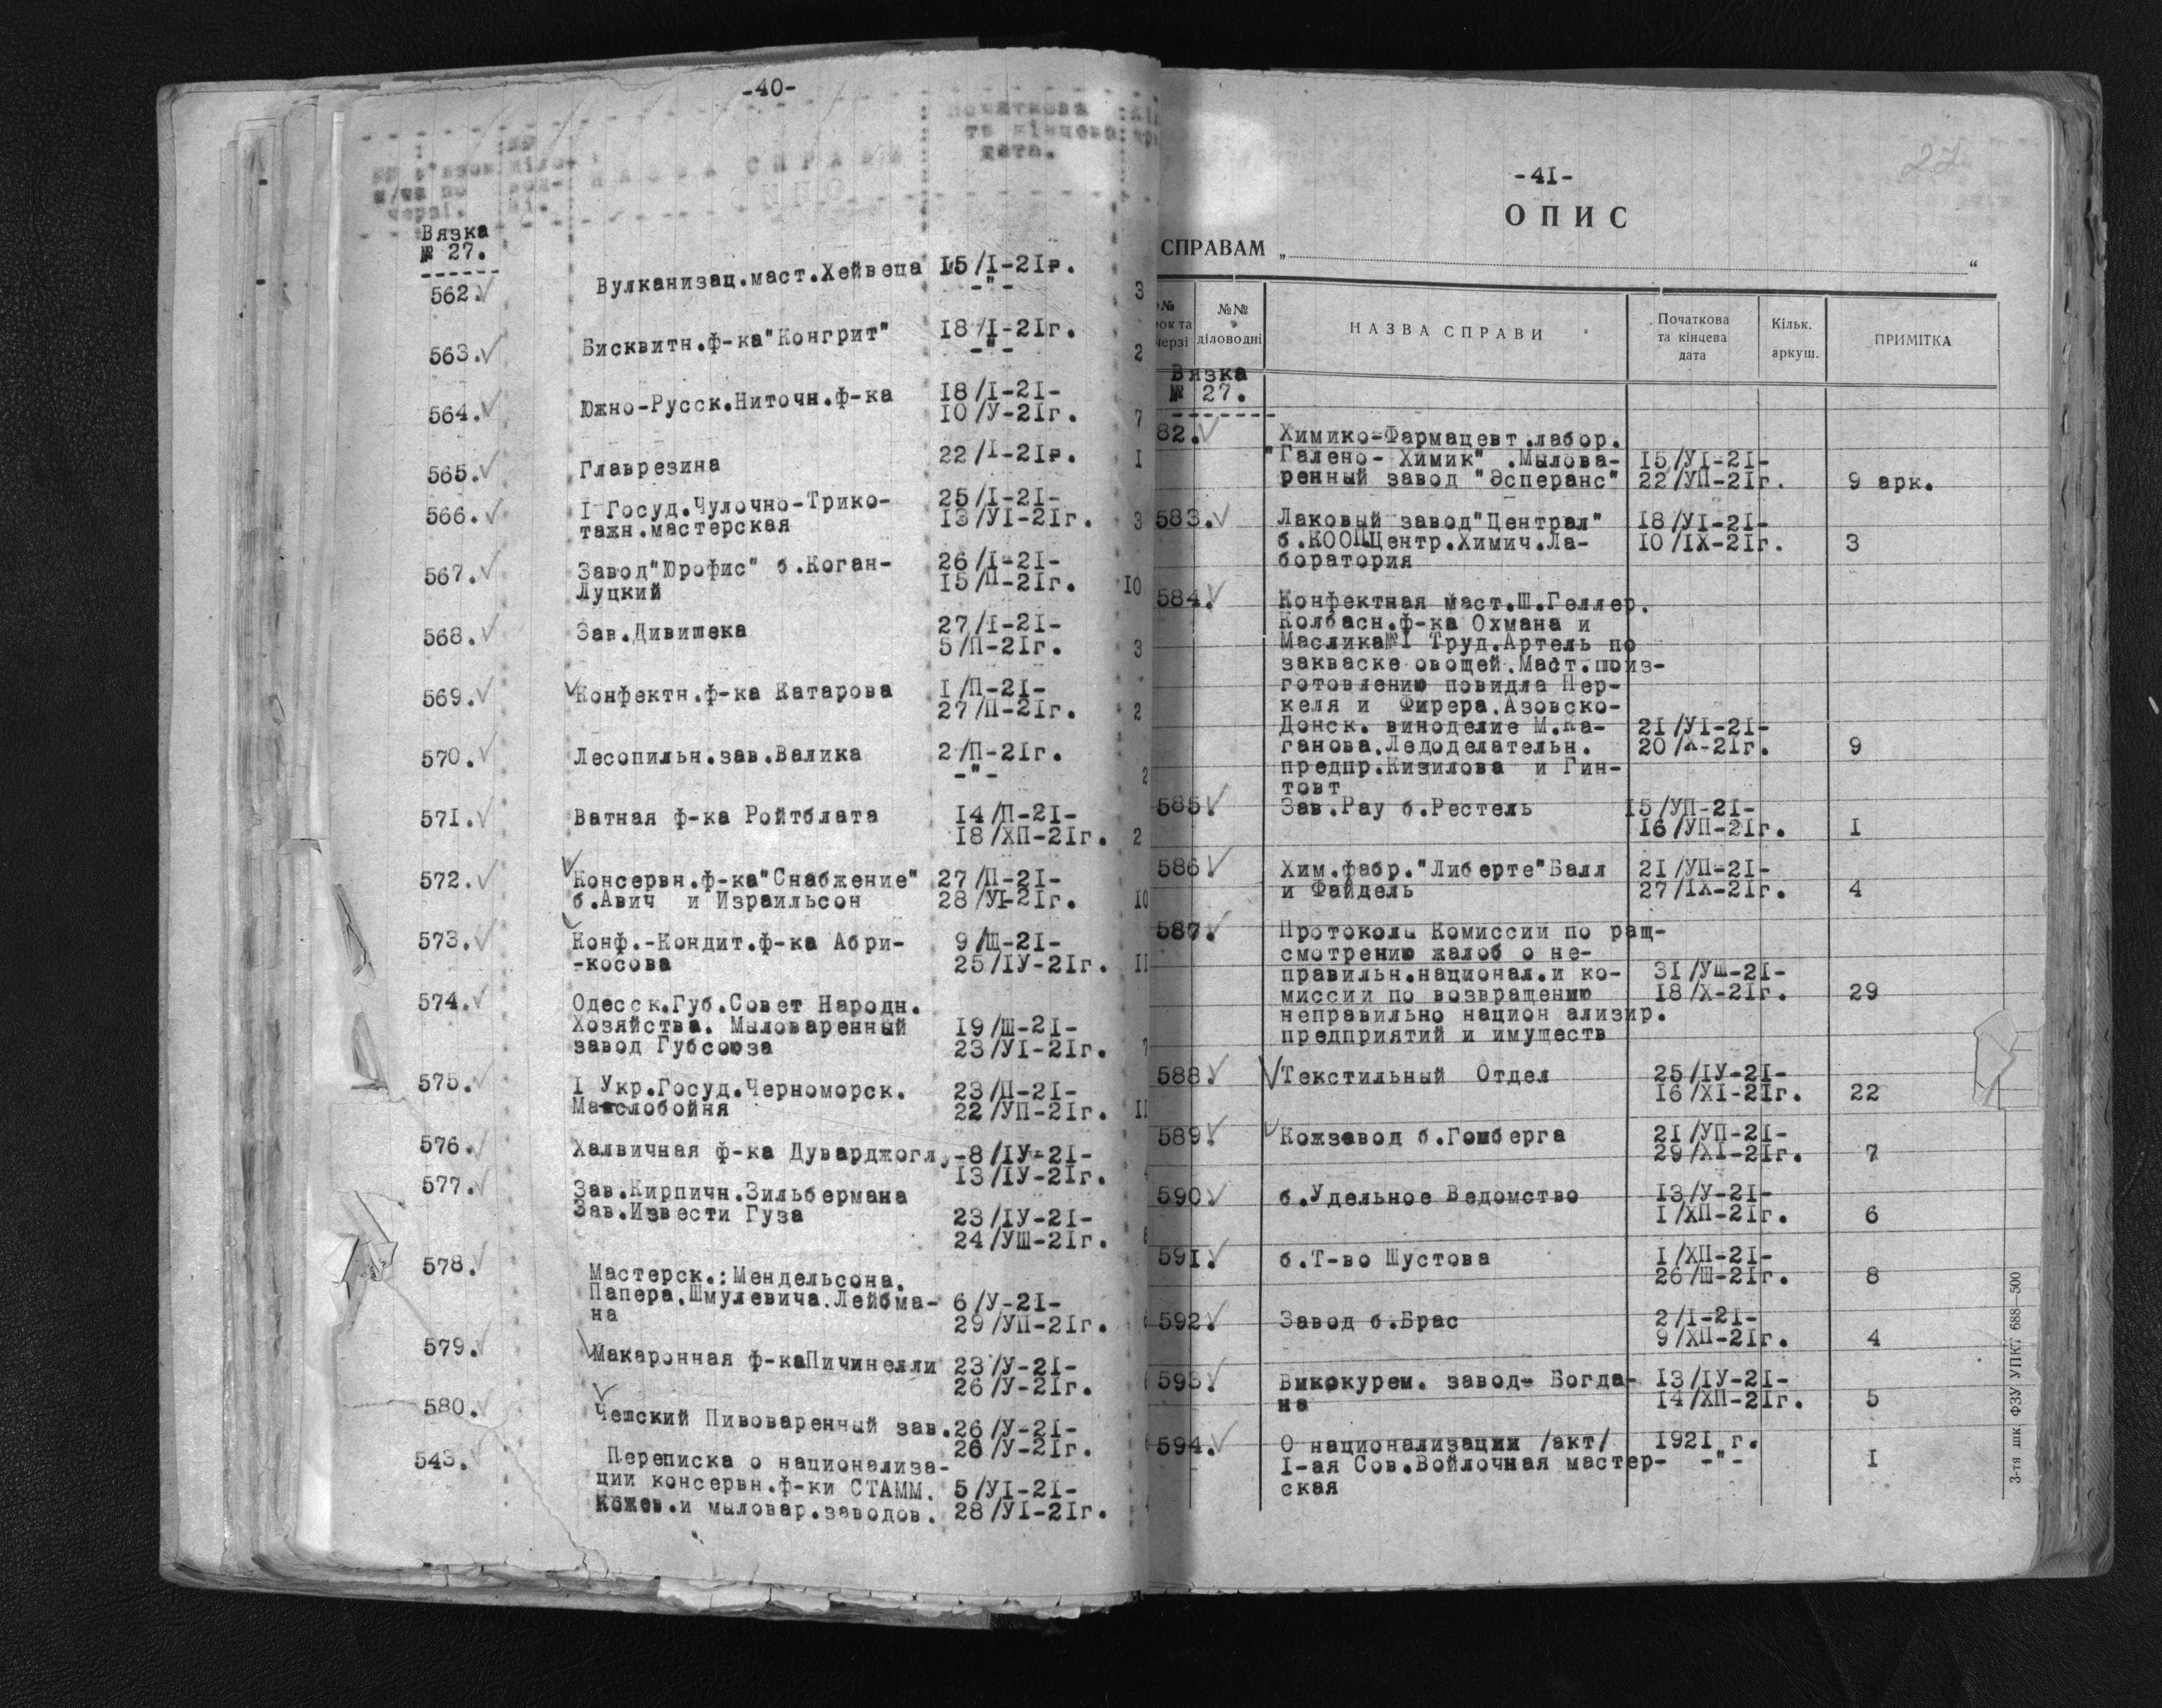 -40-
Початкова
та кінцева
дата.
НАЗВА СПРАВИ
Вязка
№ 27.
562. Вулканизац.маст.Хейвеца 15/I-21г.
-"- 3
563. Бисквитн.ф-ка"Конгрит" 18/I-21г.
-"- 2
564. Южно-Русск.Ниточн.ф-ка 18/I-21-
10/У-21г. 7
565. Главрезина 22/I-21г. I
566. I Госуд.Чулочно-Трико- 25/I-21-
тажн.мастерская 13/УI-21г. 3
567. Завод"Юрофис" б.Коган- 26/I-21-
Луцкий 15/П-21г. 10
568. Зав.Дивишека 27/I-21-
5/П-21г. 3
569. Конфектн.ф-ка Катарова I/П-21-
27/П-21г. 2
570. Лесопильн.зав.Валика 2/П-21г.
-"- 2
571. Ватная ф-ка Ройтблата 14/П-21-
18/ХП-21г. 2
572. Консервн.ф-ка"Снабжение" 27/П-21-
б.Авич и Израильсон 28/УI-21г. 10
573. Конф.-Кондит.ф-ка Абри- 9/Ш-21-
-косова 25/IУ-21г. 11
574. Одесск.Губ.Совет Народн.
Хозяйства. Мыловаренный 19/Ш-21-
завод Губсоюза 23/УI-21г. 7
575. I Укр.Госуд.Черноморск. 23/П-21-
Маслобойня 22/УП-21г. 11
576. Халвичная ф-ка Дуварджогл, -8/IУ-21-
13/IУ-21г.
577. Зав.Кирпичн.Зильбермана
Зав.Извести Гуза 23/IУ-21-
24/УШ-21г. 8
578. Мастерск.:Мендельсона.
Папера.Шмулевича.Лейбма- 6/У-21-
на 29/УП-21г.
579. Макаронная ф-каПичинелли 23/У-21-
26/У-21г.
580. Чешский Пивоваренный зав. 26/У-21-
26/У-21г.
543. Переписка о национализа-
ции консервн.ф-ки СТАММ. 5/УI-21-
Кожев.и мыловар.заводов. 28/УI-21г.
27
-41-
ОПИС
СПРАВАМ „ “
№
діловодні
№№
НАЗВА СПРАВИ
Початкова
та кінцева
дата
Кільк.
аркуш.
ПРИМІТКА
Вязка
№ 27.
82. Химико-Фармацевт.лабор.
"Галено- Химик" .Мылова- 15/УI-21-
ренный завод "Эсперанс" 22/УП-21г. 9 арк.
583. Лаковый завод"Централ" 18/УI-21-
б.КООП.Центр.Химич.Ла- 10/IХ-21г. 3
боратория
584. Конфектная маст.Ш.Геллер.
Колбасн.ф-ка Охмана и
Маслика№I Труд.Артель по
закваске овощей.Маст.поиз-
готовлению повидла Пер-
келя и Фирера.Азовско-
Донск. виноделие М.Ка- 21/УI-21-
ганова.Ледоделательн. 20/Х-21г. 9
предпр.Кизилова и Гин-
товт
585. Зав.Рау б.Рестель 15/УП-21-
16/УП-21г. I
586. Хим.фабр."Либерте"Балл 21/УП-21-
и Файдель 27/IХ-21г. 4
587. Протоколы Комиссии по ращ-
смотрению жалоб о не-
правильн.национал.и ко- 31/УШ-21-
миссии по возвращению 18/Х-21г. 29
неправильно национ ализир.
предприятий и имуществ
588. Текстильный Отдел 25/IУ-21-
16/ХI-21г. 22
589. Кожзавод б.Гомберга 21/УП-21-
29/ХI-21г. 7
590. б.Удельное Ведомство 13/У-21-
I/ХП-21г. 6
591. б.Т-во Шустова I/ХП-21-
26/Ш-21г. 8
592. Завод б.Брас 2/I-21-
9/ХП-21г. 4
593. Винокурен. завод- Богда- 13/IУ-21-
на 14/ХП-21г. 5
594. О национализации /акт/ 1921 г.
I-ая Сов.Войлочная мастер- -"- I
ская
3-тя шк ФЗУ УПКТ 688—500